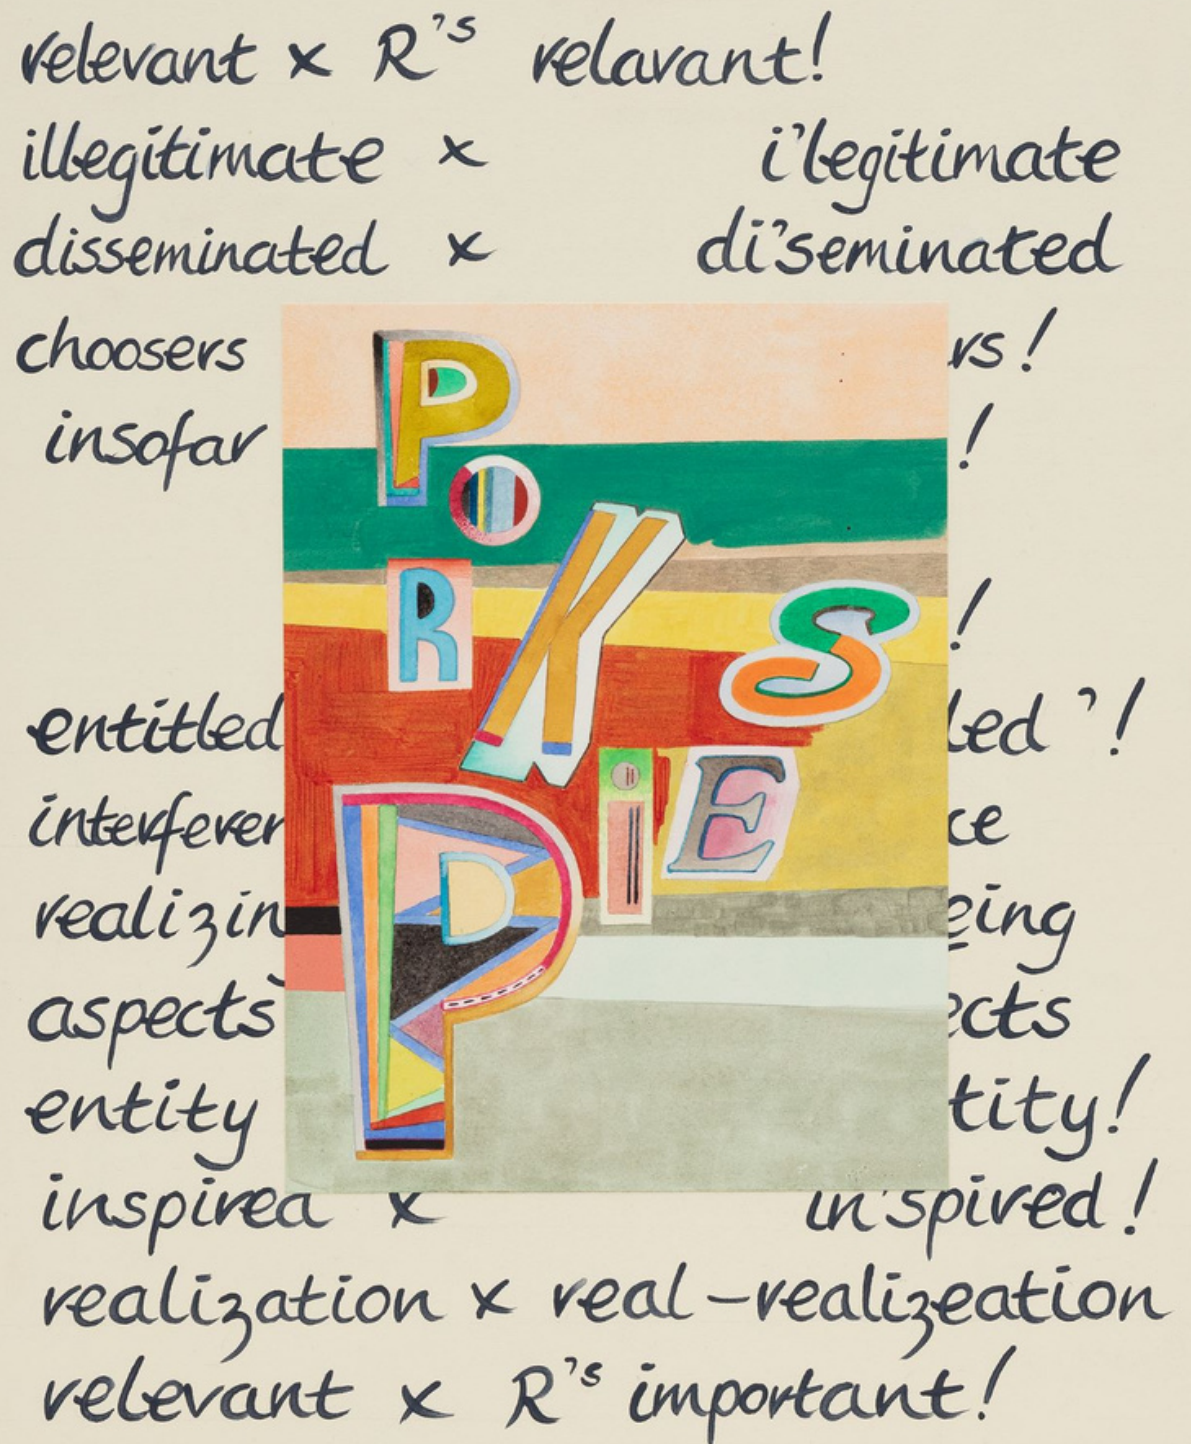 relevant x R's relavant!
illegitimate x i'legitimate
disseminated x di'seminated
choosers rs!
insofar !
!
entitled led '!
interferen ce
realizin eing
aspects ects
entity tity!
inspired x in'spired!
realization x real-realizeation
relevant x R's important!
PORK
PIES